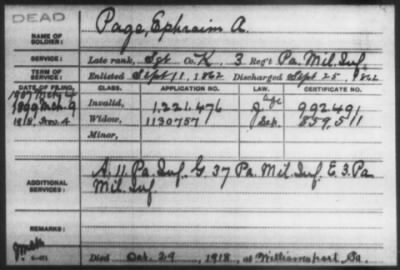 DEAD
NAME OF SOLDIER: Page, Ephraim A.
SERVICE: Late rank, Sgt Co. K, 3 Reg't Pa. Mil. Inf.
TERM OF SERVICE: Enlisted Sept 11, 1862 Discharged Sept 25, 1862
DATE OF FILING. CLASS. APPLICATION NO. LAW. CERTIFICATE NO.
1907
1899 Mch. 9 Invalid, 1.221.476 J 992491
1918, Nov. 4 Widow, 1130757 859511
Minor,
ADDITIONAL SERVICES: A. 11 Pa. Inf. G 37 Pa. Mil Inf. E. 3. Pa
Mil. Inf
REMARKS:
Died Oct. 29, 1918, at Williamsport, Pa.